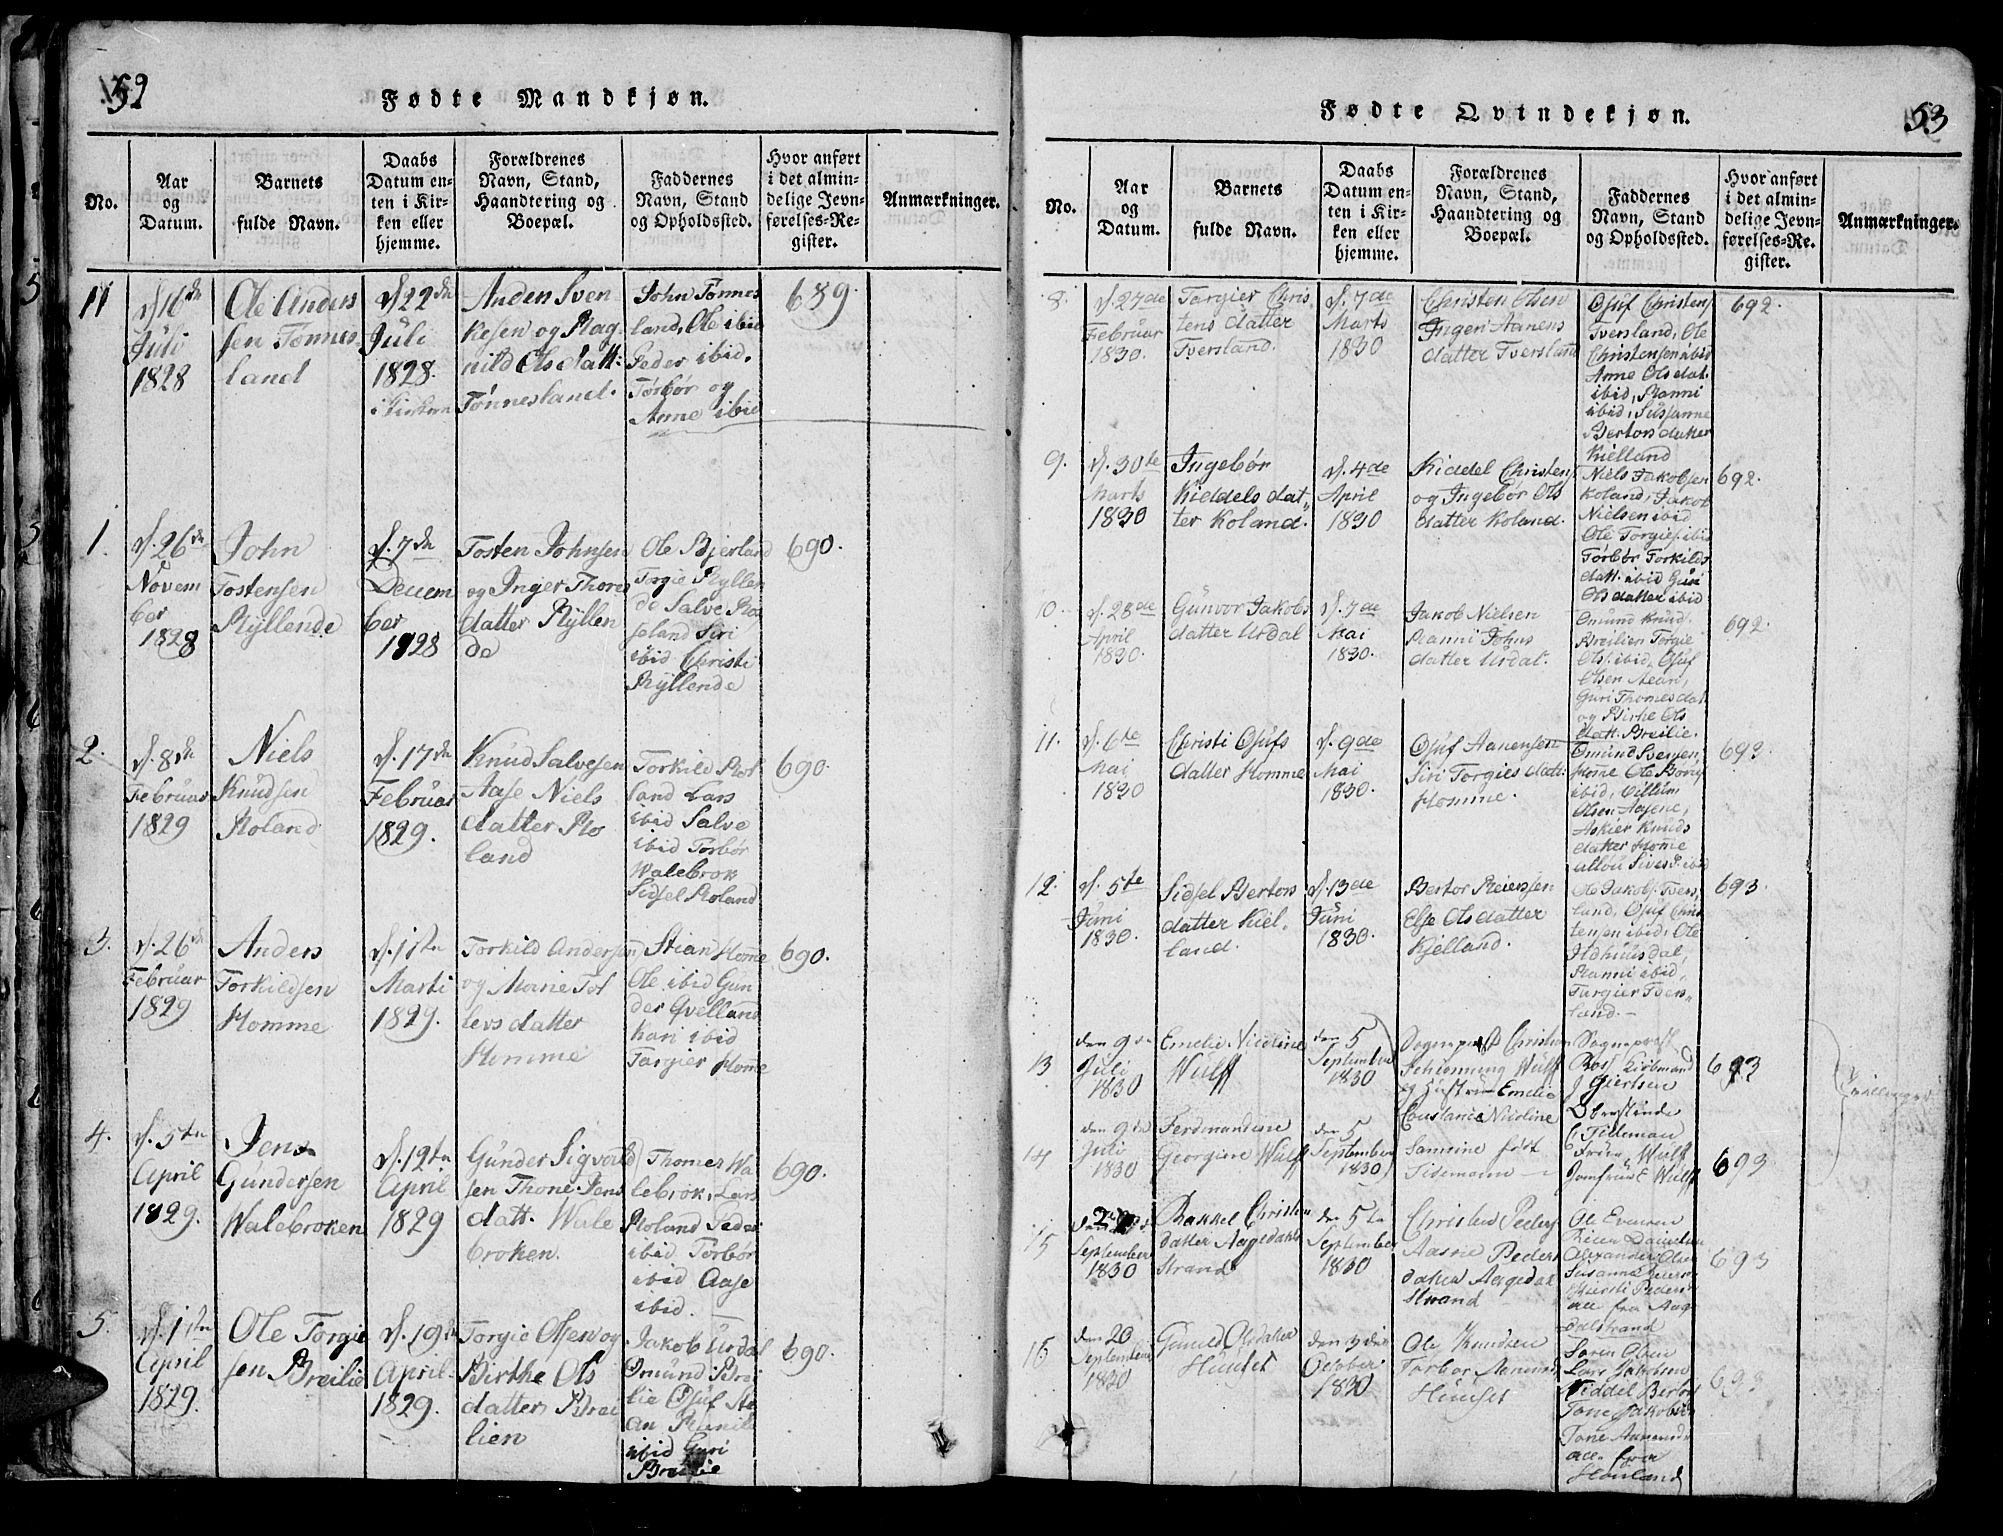 52
Fødte Mandkjøn.
No.
Aar
og
Datum.
Barnets
fulde Navn.
Daabs
Datum en-
ten i Kir-
ken eller
hjemme.
Forældrenes
Navn, Stand,
Haandtering og
Boepæl.
Faddernes
Navn, Stand
og Opholdssted.
Hvor anført
i det almin-
delige Jevn-
førelses-Re-
gister.
Anmærkninger.
11
d. 16de
Juli
1828
Ole Anders
sen Tønnes
land
d. 22de
Juli
1828.
i Kirken
Anden Sven
kesen og Rag
nild Olsdatt:
Tönnesland.
John Tønnes
land, Ole ibid
Peder ibid.
Tørbør og
Anne ibid
689
1.
d. 26de
Novem
ber
1828
John
Tostensen
Ryllende
d. 7de
Decem
ber
1828
Tosten Johnsen
og Inger Thores
datter Ryllen
de
Ole Bjerland
Torgie Ryllen
de Salve Ro
seland Siri
ibid Christi
Ryllende
690.
2.
d. 8de
Februar
1829
Niels
Knudsen
Roland
d. 17de
Februar
1829.
Knud Salvesen
Aase Niels
datter Ro
land
Torkild Ro
land Lars
ibid Salve
ibid Torbør
Walebrok
Sidsel Roland
690.
3.
d. 26de
Februar
1829
Anders
Torkildsen
Homme
d. 11te
Marti
1829.
Torkild Andersen
og Marie Tol
levs datter
Homme
Stian Home
Ole ibid Gun
der Qvelland
Kari ibid
Targier Home
690.
4.
d. 5te
April
1829.
Jens
Gundersen
Walebroken
d. 12te
April
1829
Gunder Sigvald
sen Thone Jens
datt. Wale
broken.
Thomes Wa
lebrok, Lars
Roland Peder
ibid Torbør
ibid Aase
ibid.
690.
5.
d. 11te
April
1829.
Ole Torgie
sen Breilie
d. 19de
April
1829.
Torgie Olsen og
Birthe Ols
datter Brei
lien
Jakob Urdal
Omund Brei
lie Osuf
ibid Guri
Breilie
690.
53
Fødte Qvindekjøn.
No.
Aar
og
Datum.
Barnets
fulde Navn.
Daabs
Datum en-
ten i Kir-
ken eller
hjemme.
Forældrenes
Navn, Stand,
Haandtering og
Boepæl.
Faddernes
Navn, Stand
og Opholdssted.
Hvor anført
i det almin-
delige Jevn-
førelses-Re-
gister.
Anmærkninger.
8.
d. 27de
Februar
1830.
Targier Chris
tens datter
Tversland.
d. 7de
Marts
1830
Christen Olsen
Ingeri Aanens
datter Tversland
Osuf Christens
Tversland, Ole
Christensen ibid
Anne Olsdat.
ibid, Ranni
ibid, Sussanne
Bertors datter
Kielland
692.
9.
d. 30te
Marts
1830
Ingebør
Kieddels dat
ter Koland.
d. 4de
April
1830
Kiddel Christens
og Ingebør Ols
datter Koland.
Niels Jakobsen
Koland, Jakob
Nielsen ibid
Ole Torgies. ibid
Tørbør Torkilds
datt. ibid Guri
Olsdatter ibid
692.
10.
d. 28de
April
1830.
Gunvor Jakobs
datter Urdal
d. 7de
Mai
1830.
Jakob Nielsen
Ranni Johns
datter Urdal.
Omund Knud.
Breilien Torgie
Ols. ibid, Osuf
Olsen
Guri Thomesdat.
og Birthe Ols
datt. Breilie.
692.
11.
d. 6te
Mai
1830
Christi Osufs
datter Homme
d. 9de
Mai
1830.
Osuf Aanensen
Siri Torgies datt:
Homme.
Omund
Home Ole
ibid,
Olsen
Askier Knuds
datter Home
ibid
693
12.
d. 5te
Juni
1830.
Sidsel Bertors
datter Kiel-
land.
d. 13de
Juni
1830.
Bertor Reiersen
Else Olsdatter
Kjelland.
Ole Jakobs. Tvers,
land, Osuf Chris
tensen ibid, Ole
Ildhuusdal,
Ranni ibid,
Targier Tvers-
land.
693.
13
den 9de
Juli
1830
Emelie Nicoline
Wulff
den 5
September
1830
Sogneprest Christian
Schienning Wulff
og Hustrue Emelie
Constance Nicoline
Sogneprest
Kiøbmand
J Giertsen
693
Tvillinger
14
den 9de
Juli
1830
Ferdinandine
Georgine Wulff
den 5
September
1830
Samsine født
Tidemann
C Tideman
Frøen Wulff
Jomfrue Wulff
693
15
September
1830
Rakkel Christen
datter Aagedals
Strand
den 5te
September
1830
Christen Peders
Aasne Peders
datter Aagedal
Strand
Ole Evensen
Reier Danielsen
Alexander Olsen
Susanne Reiers
Kiersti Peders
alle fra Aag
dalstrand
693
16
den 20
September
1830
Gunild Olsdatter
Huuset
den 3die
October
1830
Ole Knudsen
Torbor Aanunds
Huuset
Søren Olsen
Lars Jakobsen
Kiddel Bertors
Tone Jakobsen
Tone Aanunds
alle fra
693